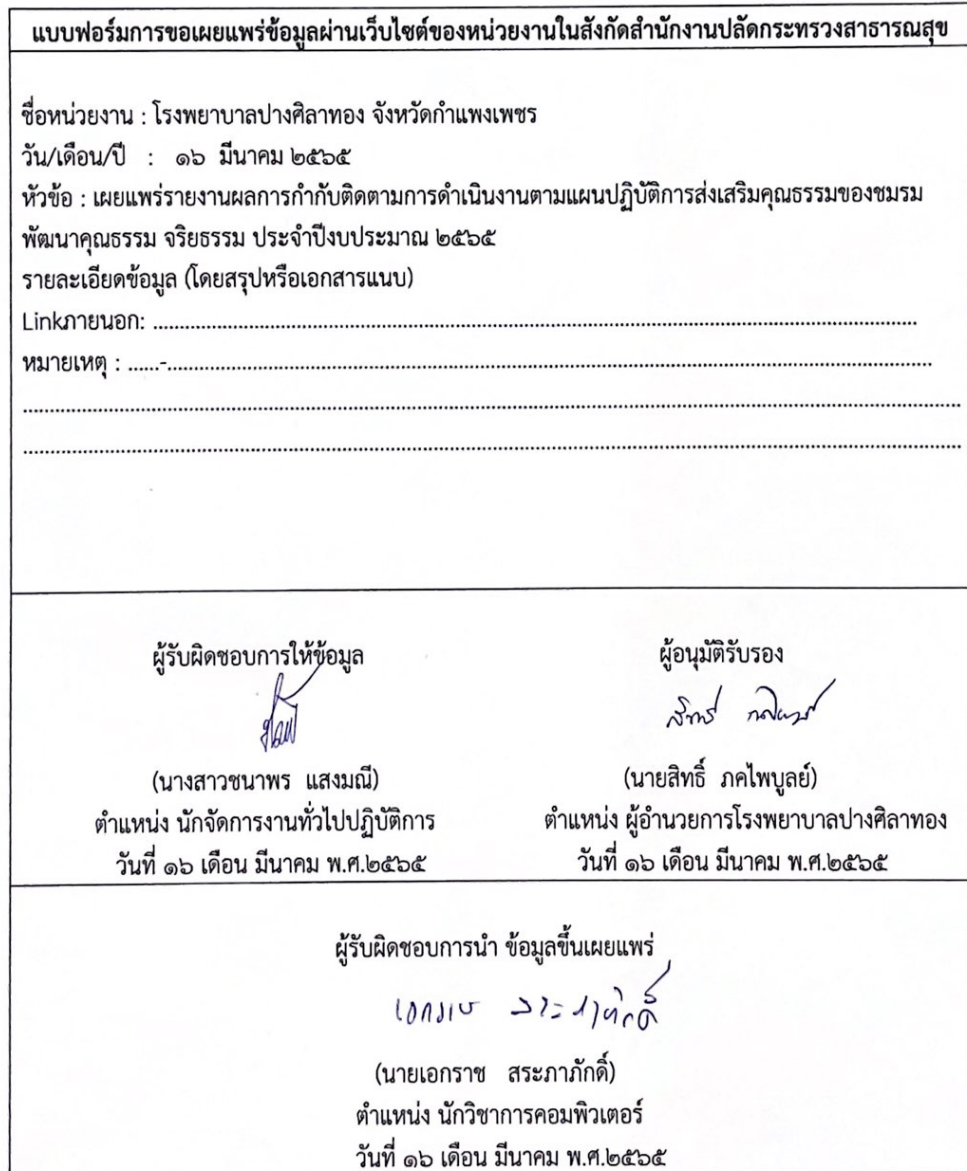 แบบฟอร์มการขอเผยแพร่ข้อมูลผ่านเว็บไซต์ของหน่วยงานในสังกัดสำนักงานปลัดกระทรวงสาธารณสุข
ชื่อหน่วยงาน : โรงพยาบาลปางศิลาทอง จังหวัดกำแพงเพชร
วัน/เดือน/ปี : ๑๖ มีนาคม ๒๕๖๕
หัวข้อ : เผยแพร่รายงานผลการกำกับติดตามการดำเนินงานตามแผนปฏิบัติการส่งเสริมคุณธรรมของชมรม
พัฒนาคุณธรรม จริยธรรม ประจำปีงบประมาณ ๒๕๖๕
รายละเอียดข้อมูล (โดยสรุปหรือเอกสารแนบ)
Linkภายนอก: ..........
หมายเหตุ : ......-..........
ผู้รับผิดชอบการให้ข้อมูล
(นางสาวชนาพร แสงมณี)
ตำแหน่ง นักจัดการงานทั่วไปปฏิบัติการ
วันที่ ๑๖ เดือน มีนาคม พ.ศ.๒๕๖๕
ผู้อนุมัติรับรอง
(นายสิทธิ์ ภคไพบูลย์)
ตำแหน่ง ผู้อำนวยการโรงพยาบาลปางศิลาทอง
วันที่ ๑๖ เดือน มีนาคม พ.ศ.๒๕๖๕
ผู้รับผิดชอบการนำ ข้อมูลขึ้นเผยแพร่
(นายเอกราช สระภาภักดิ์)
ตำแหน่ง นักวิชาการคอมพิวเตอร์
วันที่ ๑๖ เดือน มีนาคม พ.ศ.๒๕๖๕